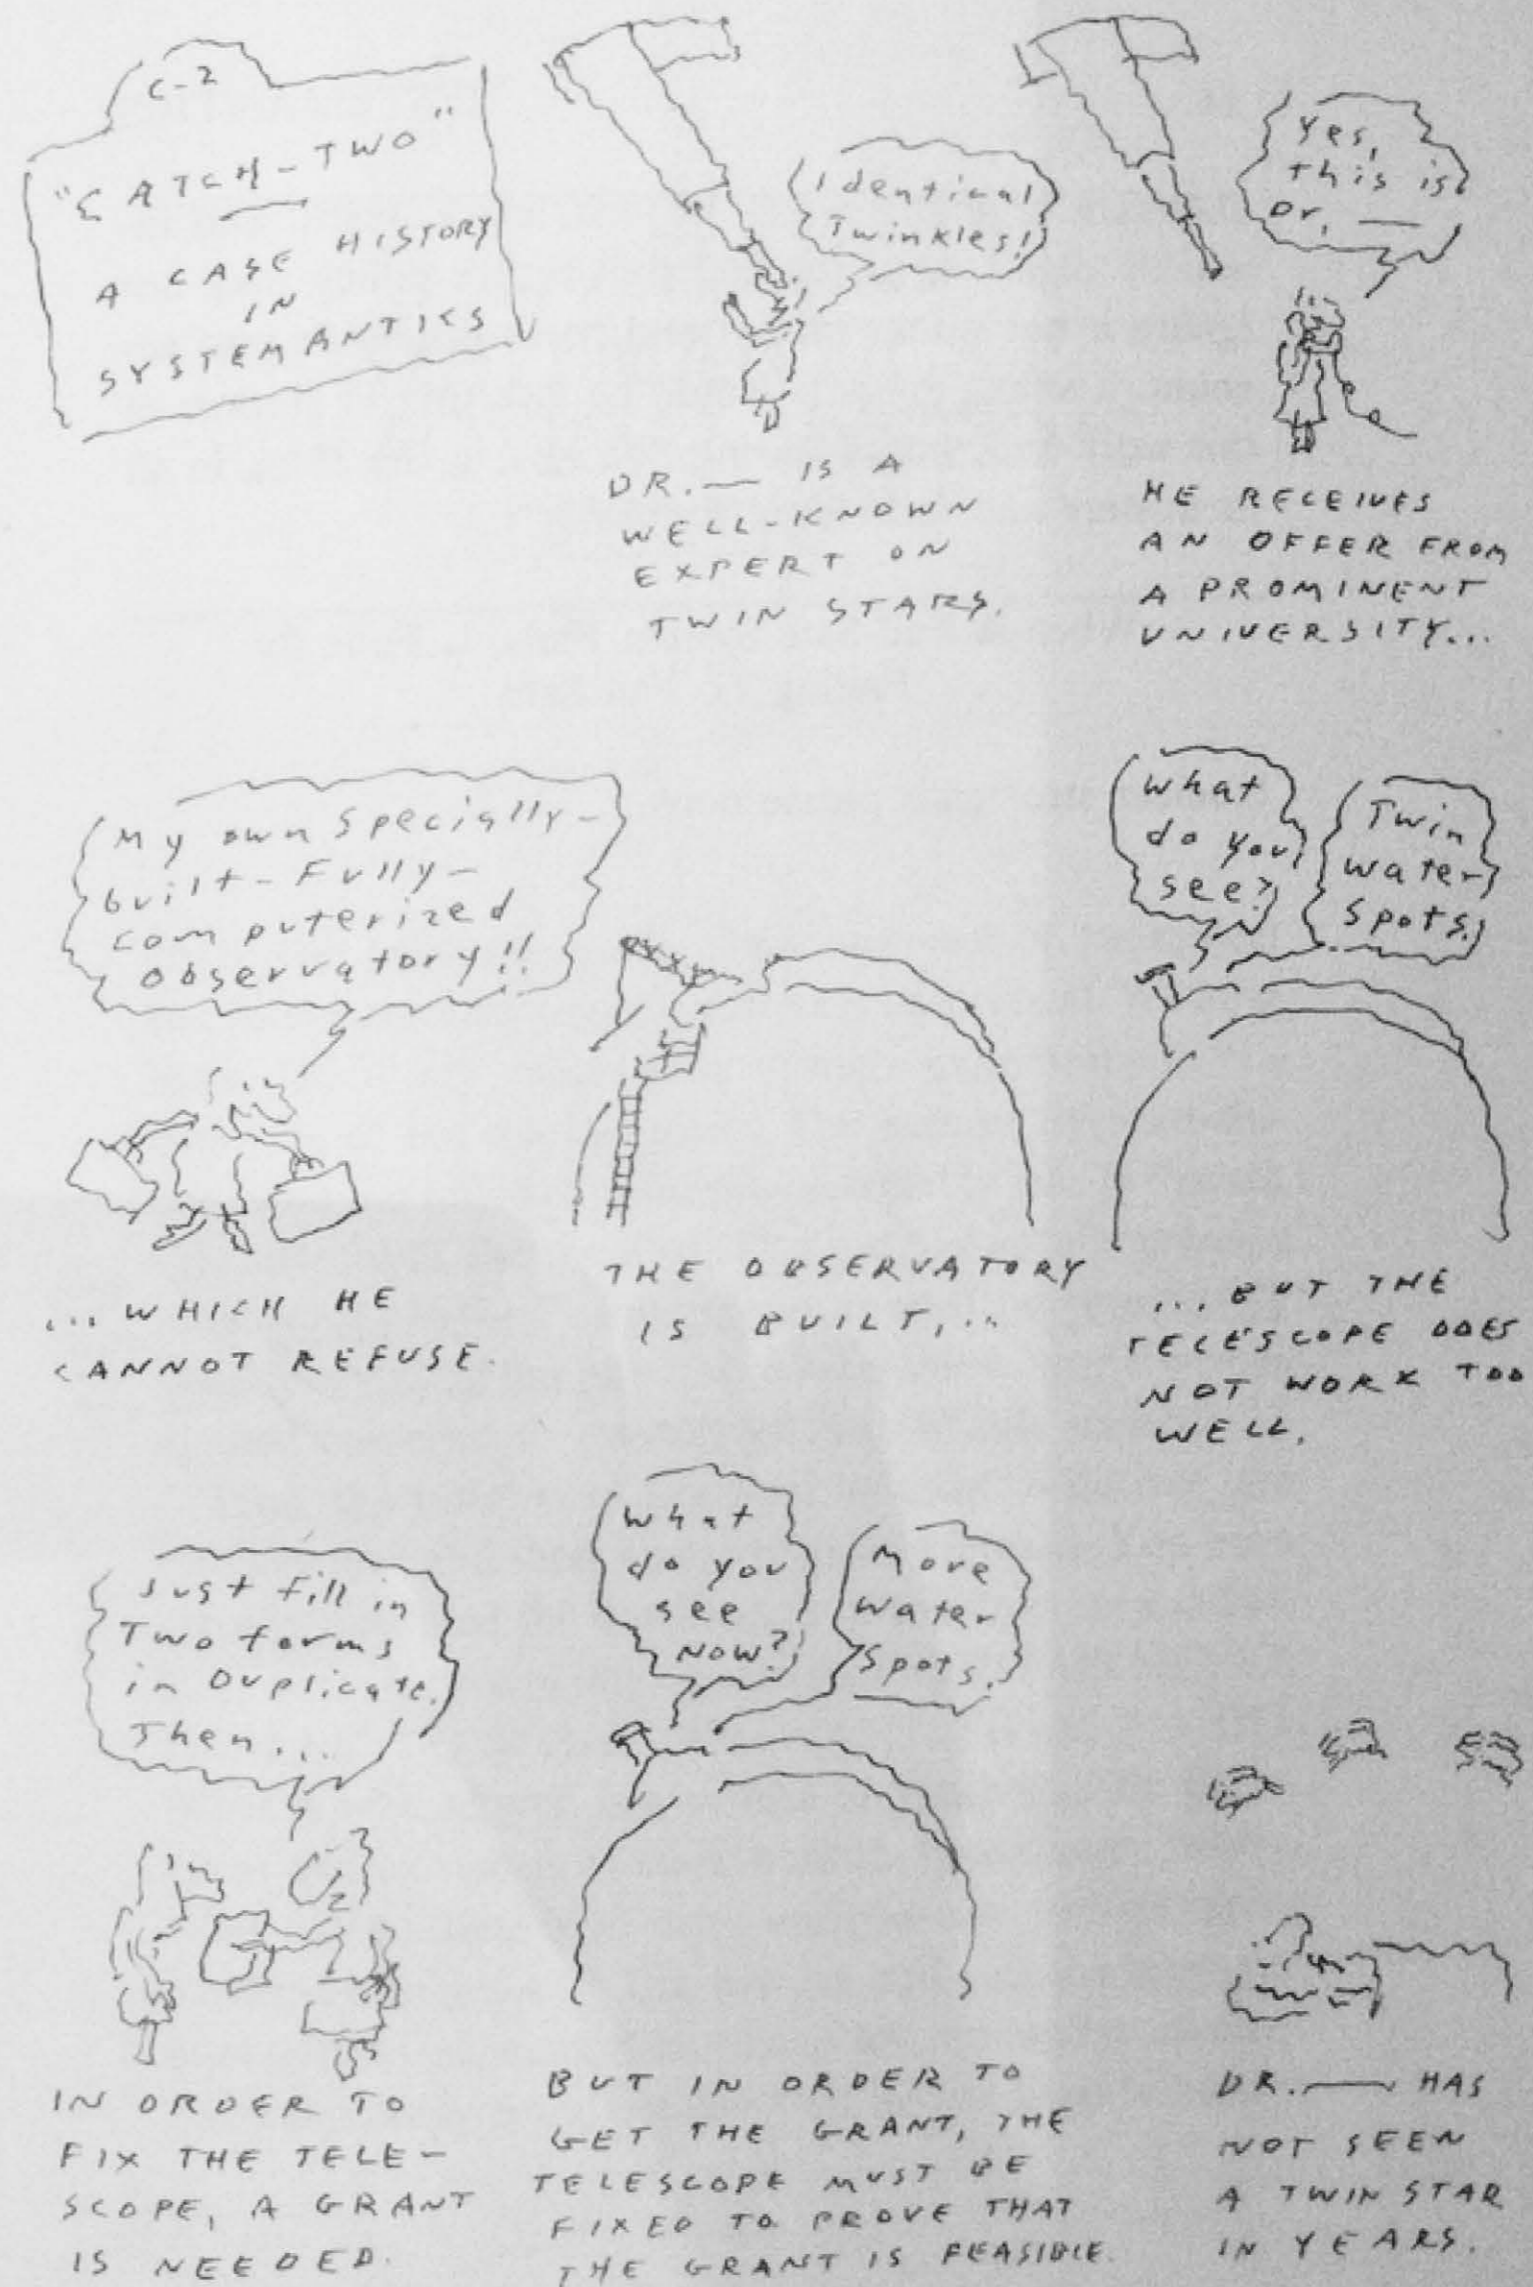 C-2
"CATCH-TWO"
A CASE HISTORY
IN
SYSTEMANTICS
Identical
Twinkles!
DR. — IS A
WELL-KNOWN
EXPERT ON
TWIN STARS.
Yes,
this is
Dr. —
HE RECEIVES
AN OFFER FROM
A PROMINENT
UNIVERSITY...
My own Specially-
built-Fully-
computerized
Observatory!!
...WHICH HE
CANNOT REFUSE.
THE OBSERVATORY
IS BUILT,...
What
do you
see?
Twin
Water
Spots.
...BUT THE
TELESCOPE DOES
NOT WORK TOO
WELL.
Just fill in
Two forms
in Duplicate.
Then...
IN ORDER TO
FIX THE TELE-
SCOPE, A GRANT
IS NEEDED.
What
do you
see
NOW?
More
Water
Spots.
BUT IN ORDER TO
GET THE GRANT, THE
TELESCOPE MUST BE
FIXED TO PROVE THAT
THE GRANT IS FEASIBLE.
DR. — HAS
NOT SEEN
A TWIN STAR
IN YEARS.